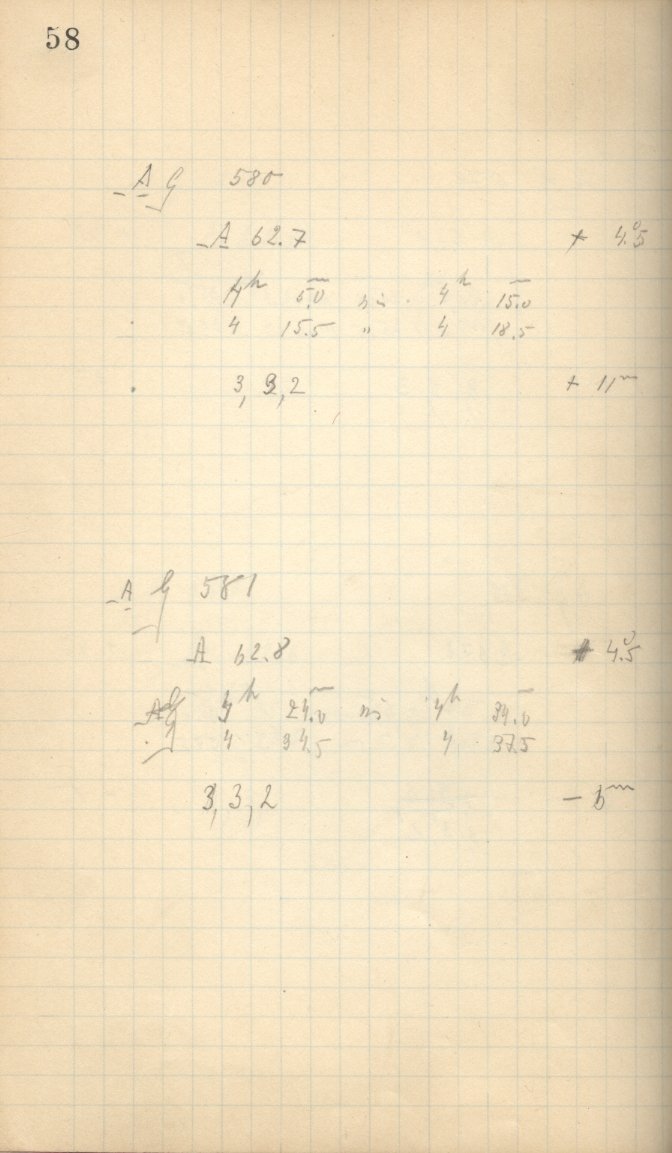 58
A G 580
A 62.7 + 4.°5
4ʰ 5.ᵐ0 bis 4ʰ 15.ᵐ0
4 15.5 " 4 18.5
3, 3, 2 + 11ᵐ
A G 581
A 62.8 4.°5
4ʰ 24.ᵐ0 bis 4ʰ 34.ᵐ0
4 34.5 4 37.5
3, 3, 2 − 6ᵐ